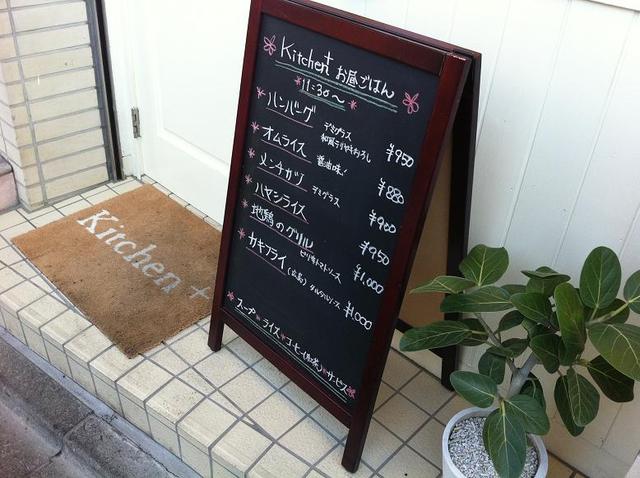 Kitchen+ お昼ごはん
11:30〜
ハンバーグ デミグラス
和風テリヤキおろし ¥950
オムライス 醤油味! ¥880
メンチカツ デミグラス ¥900
ハヤシライス ¥950
地鶏のグリル ピリ辛トマトソース ¥1,000
カキフライ (広島) タルタルソース ¥1,000
スープ・ライス・コーヒー(紅茶)サービス
Kitchen +